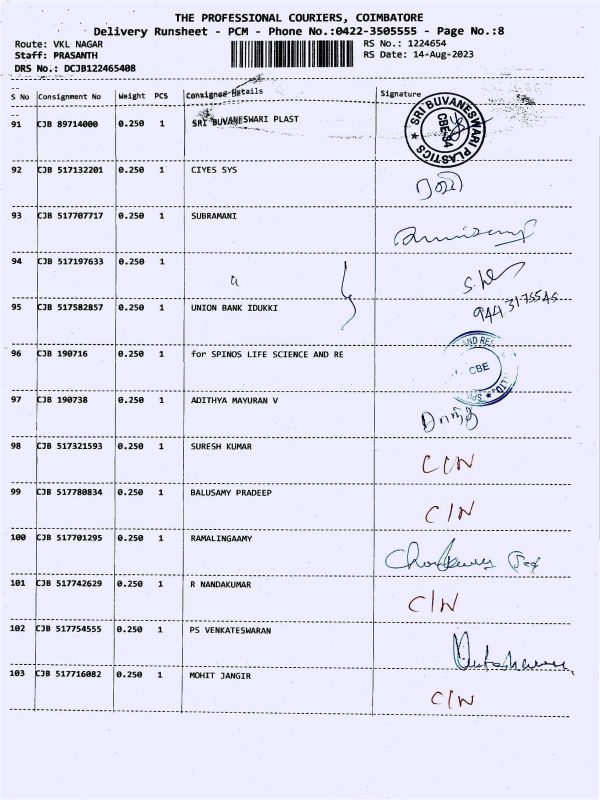 THE PROFESSIONAL COURIERS, COIMBATORE
Delivery Runsheet - PCM - Phone No.:0422-3505555 - Page No.:8
Route: VKL NAGAR RS No.: 1224654
Staff: PRASANTH RS Date: 14-Aug-2023
DRS No.: DCJB122465408
S No Consignment No Weight PCS Consignee Details Signature
91 CJB 89714000 0.250 1 SRI BUVANESWARI PLAST
SRI BUVANESWARI PLASTICS
CBE-
92 CJB 517132201 0.250 1 CIYES SYS
93 CJB 517707717 0.250 1 SUBRAMANI
94 CJB 517197633 0.250 1
9443175545
95 CJB 517582857 0.250 1 UNION BANK IDUKKI
96 CJB 190716 0.250 1 for SPINOS LIFE SCIENCE AND RE
AND RES
CBE
LTD.
97 CJB 190738 0.250 1 ADITHYA MAYURAN V
98 CJB 517321593 0.250 1 SURESH KUMAR C/N
99 CJB 517780834 0.250 1 BALUSAMY PRADEEP C/N
100 CJB 517701295 0.250 1 RAMALINGAAMY
101 CJB 517742629 0.250 1 R NANDAKUMAR C/N
102 CJB 517754555 0.250 1 PS VENKATESWARAN
103 CJB 517716082 0.250 1 MOHIT JANGIR C/N